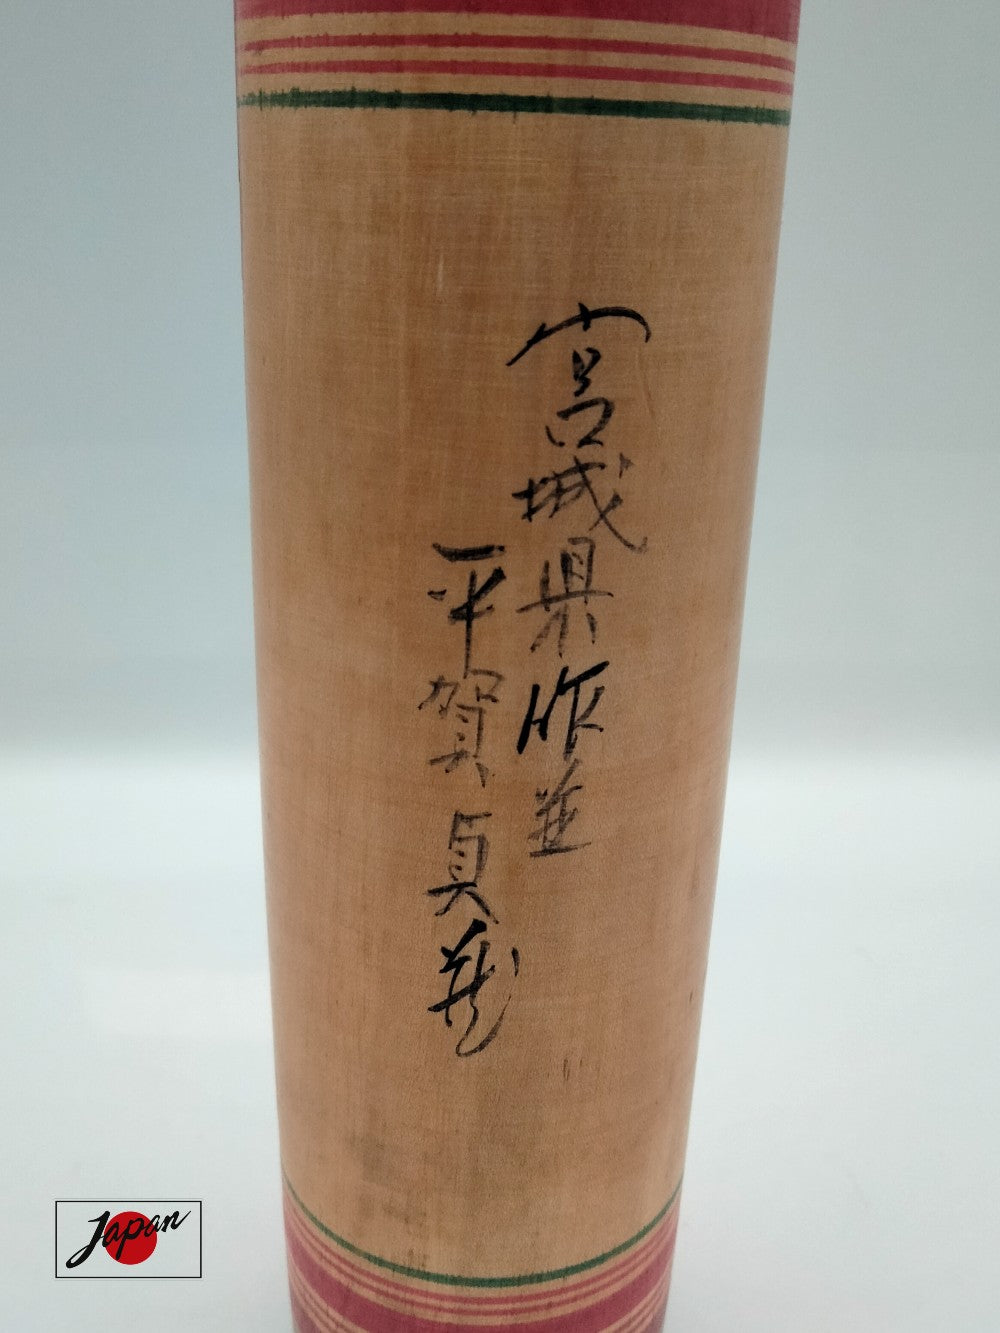 宮城県作並
平賀貞蔵
Japan